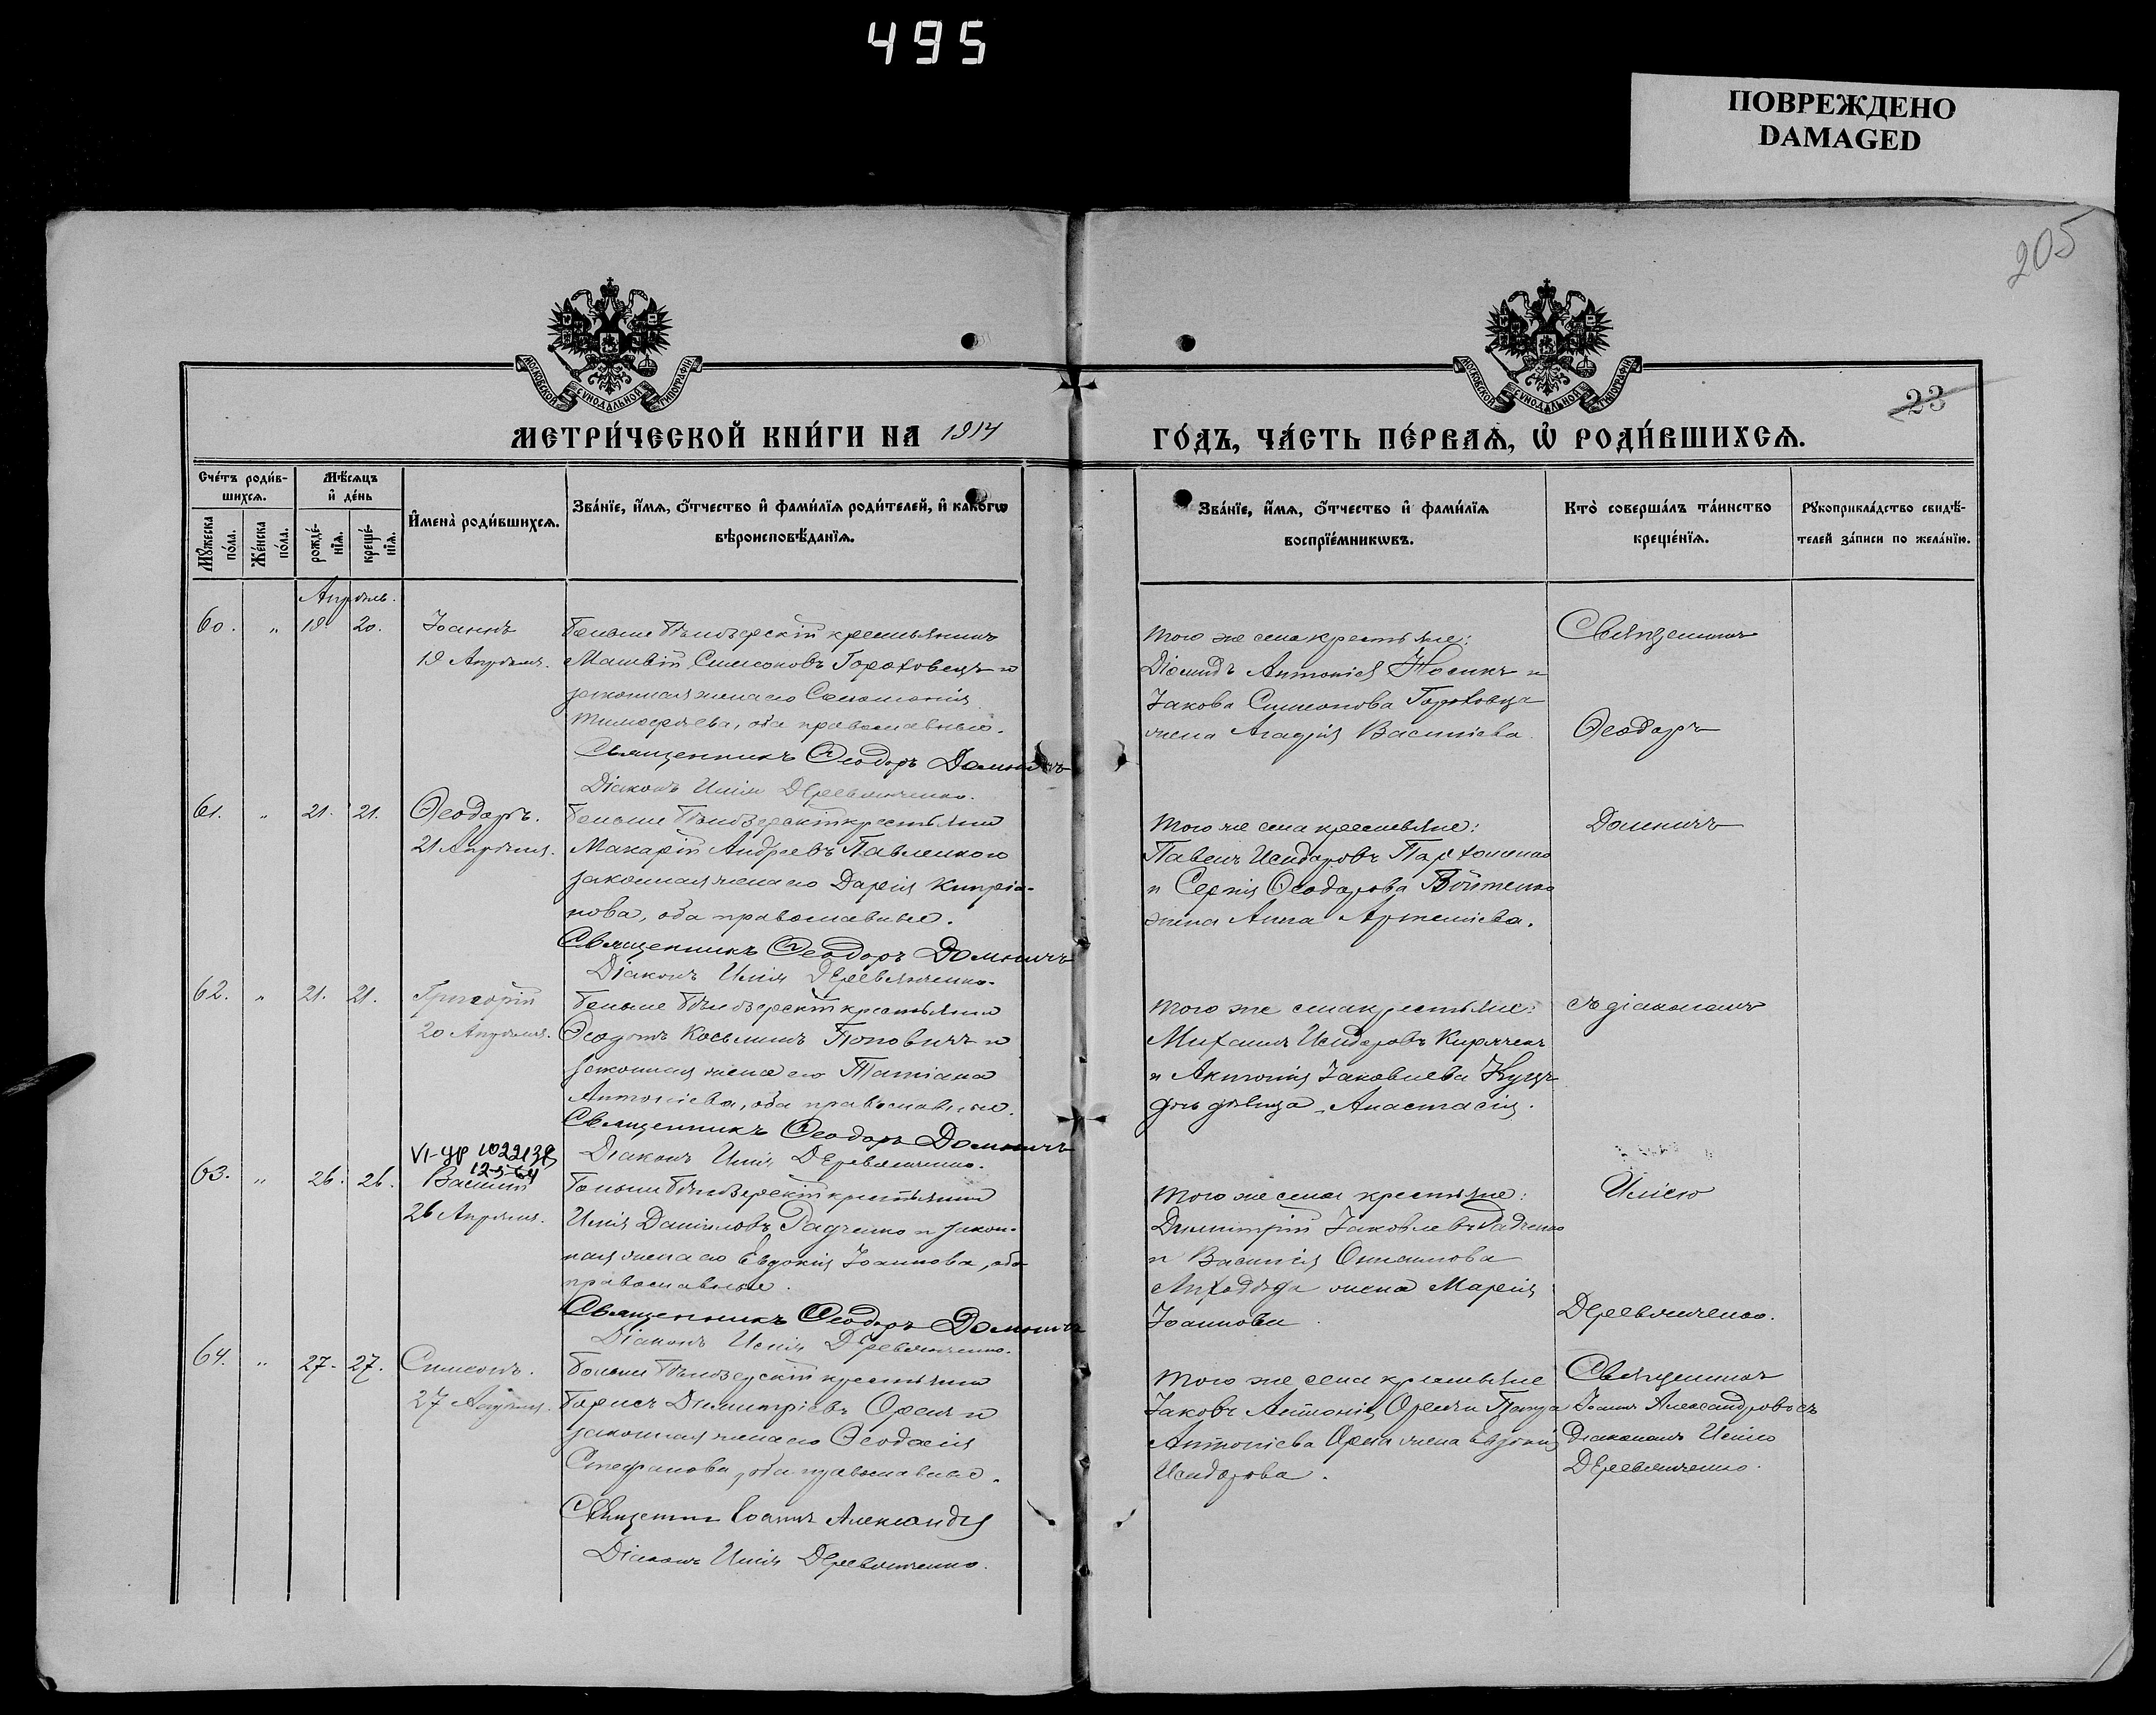 495
ПОВРЕЖДЕНО
DAMAGED
205
МОСКОВСКОЙ СѴНОДАЛЬНОЙ ТИПОГРАФІИ
МОСКОВСКОЙ СѴНОДАЛЬНОЙ ТИПОГРАФІИ
23
МЕТРИ́ЧЕСКОЙ КНИ́ГИ НА 1914
ГО́ДЪ, ЧА́СТЬ ПЕ́РВАѦ, Ѡ҆ РОДИ́ВШИХСѦ.
Сче́тъ роди́в-
шихсѧ.
Мꙋ́жеска по́ла.
Же́нска по́ла.
Мѣ́сѧцъ
и҆ де́нь
рожде́-
нїѧ.
креще́-
нїѧ.
И҆мена̀ роди́вшихсѧ.
Зва́нїе, и҆́мѧ, ѻ҆́тчество и҆ фами́лїѧ роди́телей, и҆ како́гѡ
вѣроисповѣ́данїѧ.
Зва́нїе, и҆́мѧ, ѻ҆́тчество и҆ фами́лїѧ
воспрїе́мникѡвъ.
Кто̀ соверша́лъ та́инство
креще́нїѧ.
Рꙋкоприкла́дство свидѣ́-
телей за́писи по жела́нїю.
Апрѣль.
60. " 19 20. Іоаннъ
19 Апрѣля.
крестьянинъ
Матвій Симеоновъ Гороховецъ и
законная жена его Соломонія
Тимофеева, оба православные.
Священникъ Ѳеодоръ Домничъ
Діаконъ Илія Деревянченко.
Того же села крестьяне:
Діомидъ Антоніев Носикъ и
Іакова Симеонова Гороховца
жена Агафія Васильева.
Священникъ
Ѳеодоръ
61. " 21. 21. Ѳеодоръ.
21 Апрѣля.
крестьянинъ
Макарій Андреевъ Павленко и
законная жена его Дарія Кипріа-
нова, оба православные.
Священникъ Ѳеодоръ Домничъ
Діаконъ Илія Деревянченко.
Того же села крестьяне:
Павелъ Исидоровъ Пархоменко
и Сергія Ѳеодорова Войтенко
жена Анна Артеміева.
Домничъ
62. " 21. 21. Григорій
20 Апрѣля.
крестьянинъ
Ѳеодотъ Косьминъ Поповичъ и
законная жена его Татіана
Антоніева, оба православные.
Священникъ Ѳеодоръ Домничъ
Діаконъ Илія Деревянченко.
Того же села крестьяне:
Михаилъ Исидоровъ Кирячекъ
и Антонія Іаковлева
дочь дѣвица Анастасія.
съ діакономъ
VI-УР 1022138
12-5-64
63. " 26. 26. Василій
26 Апрѣля.
крестьянинъ
Илія Даніиловъ Радченко и закон-
ная жена его Евдокія Іоаннова, оба
православные.
Священникъ Ѳеодоръ Домничъ
Діаконъ Илія Деревянченко.
Того же села крестьяне:
Димитрій Іаковлевъ Радченко
и Василія
жена Марія
Іоаннова
Иліею
Деревянченко.
64. " 27. 27. Симеонъ.
27 Апрѣля.
крестьянинъ
Борисъ Димитріевъ Орелъ и
законная жена его Ѳеодосія
Стефанова, оба православные.
Священникъ Іоаннъ Александров
Діаконъ Илія Деревянченко.
Того же села крестьяне
Іаковъ Антоніев Орелъ и
Антоніева Орла жена Евдокія
Исидорова.
Священникъ
Іоаннъ Александровъ съ
Діакономъ Иліею
Деревянченко.